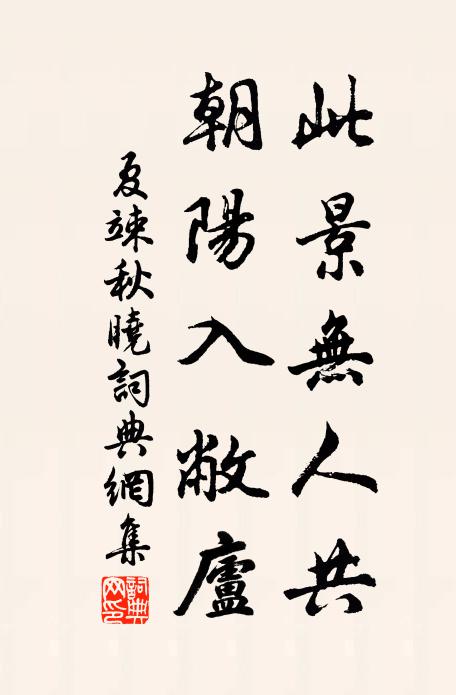 此景無人共
朝陽入敝廬
夏竦秋曉詞典網集
詞典
网印